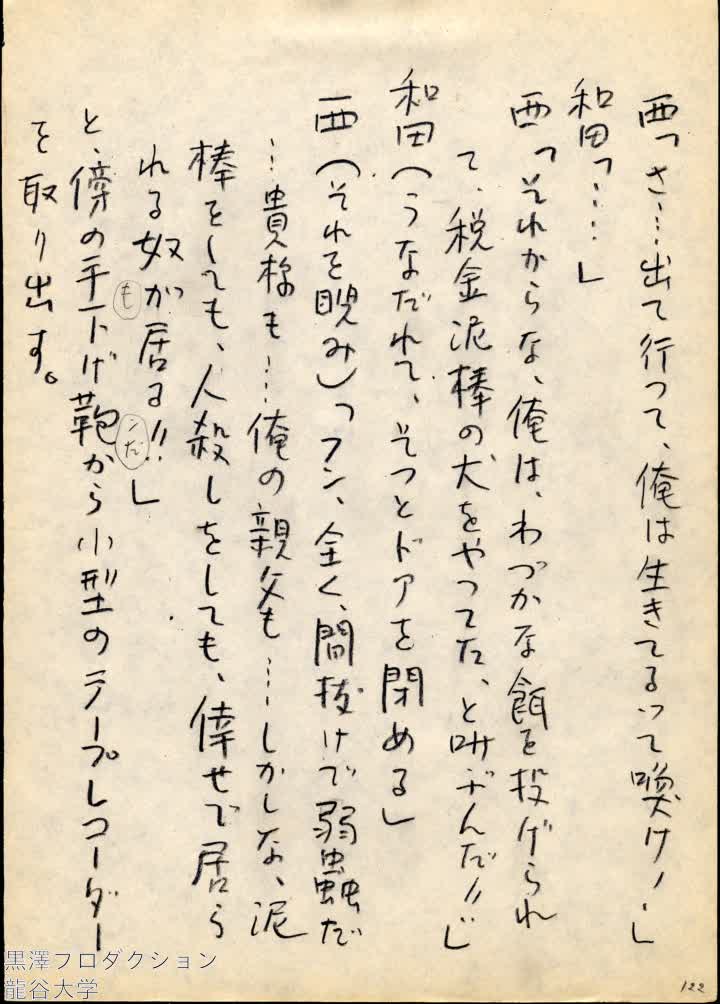 西「さ…出て行つて、俺は生きてるつて喚け!」
和田「……」
西「それからな、俺は、わづかな餌を投げられ
て、税金泥棒の犬をやつてた、と叫ぶんだ!!」
和田(うなだれて、そつとドアを閉める」
西(それを睨み)「フン、全く、間抜けで弱虫だ
…貴様も…俺の親父も……しかしな、泥
棒をしても、人殺しをしても、倖せで居ら
れる奴が居る!!」
も
ンだ
と、傍の手下げ鞄から小型のテープレコーダー
を取り出す。
122
黒澤プロダクション
龍谷大学